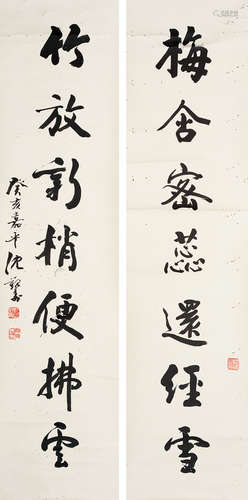 梅含密蕊還經雪
竹放新梢便拂雲
癸亥嘉平沈